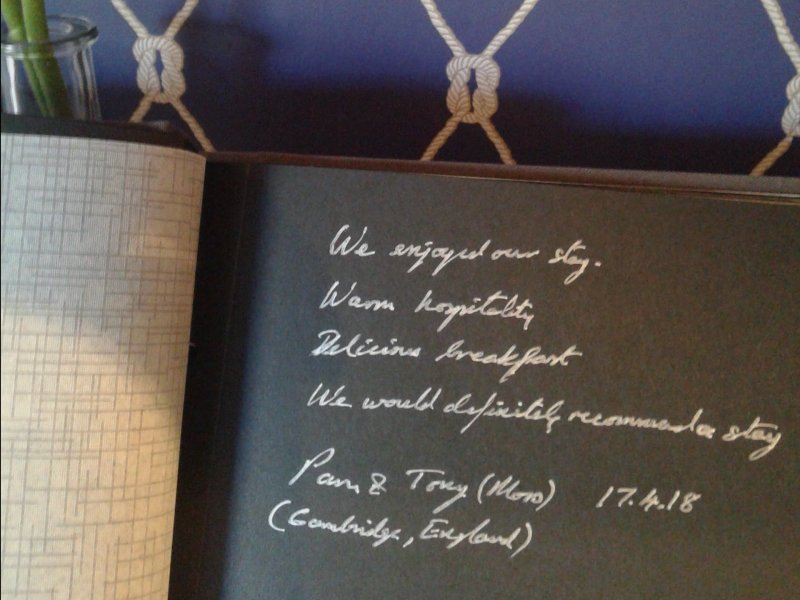 We enjoyed our stay.
Warm hospitality
Delicious breakfast
We would definitely recommend a stay
Pam & Tony (Moss) 17.4.18
(Cambridge, England)